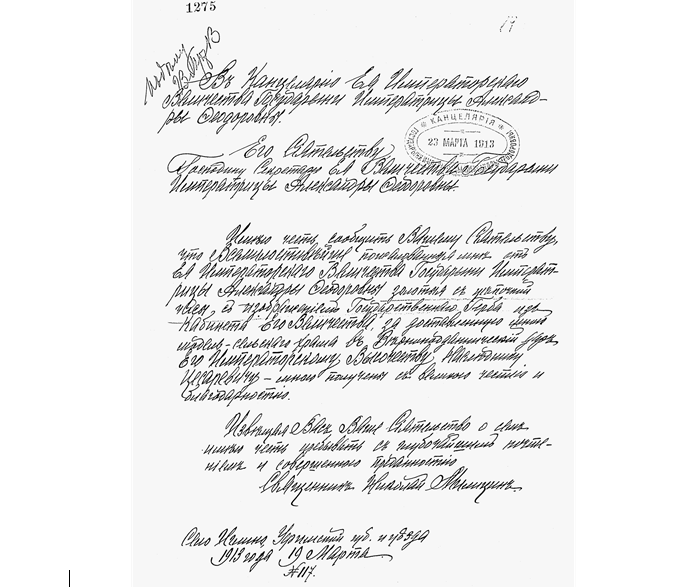 1275
17
Въ Канцелярію Ея Императорскаго
Величества Государыни Императрицы Александ-
ры Ѳеодоровны.
КАНЦЕЛЯРІЯ
23 МАРТА 1913
Его Сіятельству
Господину Секретарю Ея Величества Государыни
Императрицы Александры Ѳеодоровны.
Имѣю честь сообщить Вашему Сіятельству,
что Всемилостивѣйше пожалованные мнѣ отъ
Ея Императорскаго Величества Государыни Императ-
рицы Александры Ѳеодоровны золотые съ цѣпочкой
часы, съ изображеніемъ Государственнаго Герба изъ
Кабинета Его Величества, за доставленную мною
модель сельскаго храма въ
Его Императорскому Высочеству, Наслѣднику
Цесаревичу – мною получены съ великою честію и
благодарностію.
Извѣщая Васъ, Ваше Сіятельство о семъ
имѣю честь пребывать съ глубочайшимъ почте-
ніемъ и совершенною преданностію
Священникъ Николай
Село Уфимской губ. и уѣзда
1913 года 19 Марта
№ 117.